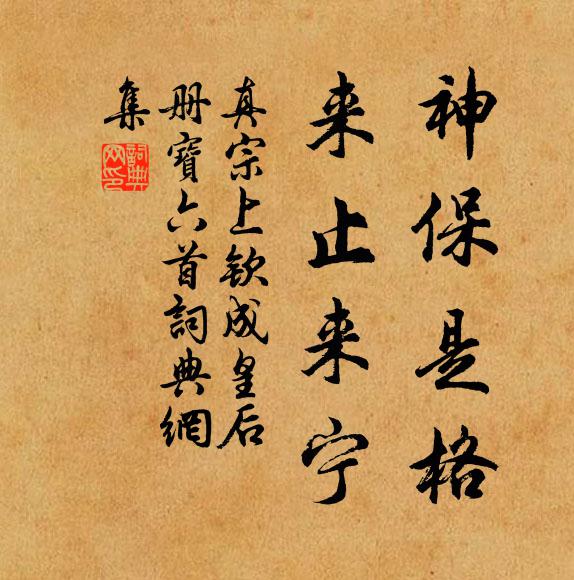 神保是格
来止来宁
真宗上钦成皇后
册寶六首詞典網
集
詞典網印